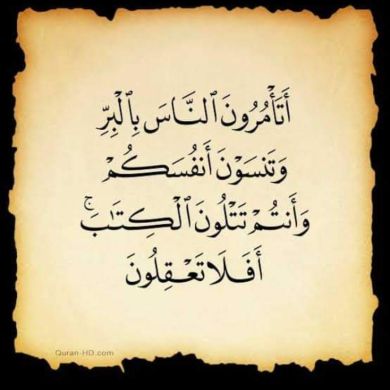 أَتَأْمُرُونَ ٱلنَّاسَ بِٱلْبِرِّ
وَتَنسَوْنَ أَنفُسَكُمْ
وَأَنتُمْ تَتْلُونَ ٱلْكِتَٰبَ ۚ
أَفَلَا تَعْقِلُونَ
Quran-HD.com